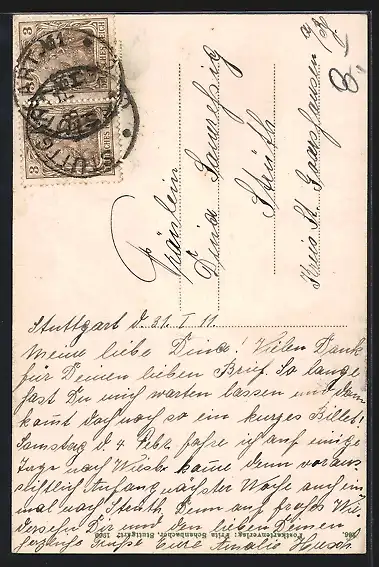 Fräulein
Dina
Steuth
Kreis St. Goarshausen a/Rh.
Stuttgart d. 31. I. 11.
Meine liebe Dina! Vielen Dank
für Deinen lieben Brief. So lange
hast Du mich warten lassen und dann
kommt doch noch so ein kurzes Billet!
Samstag d. 4. Febr. fahre ich auf einige
Tage nach komme dann voraus-
sichtlich Anfang nächster Woche auch ein-
mal nach Steuth. Denn auf frohes Wie-
dersehn Dir und den lieben Deinen
herzliche Grüße Eure Amalie
Postkartenverlag: Fritz Schanbacher, Stuttgart
3
3
DEUTSCHES REICH
STUTTGART